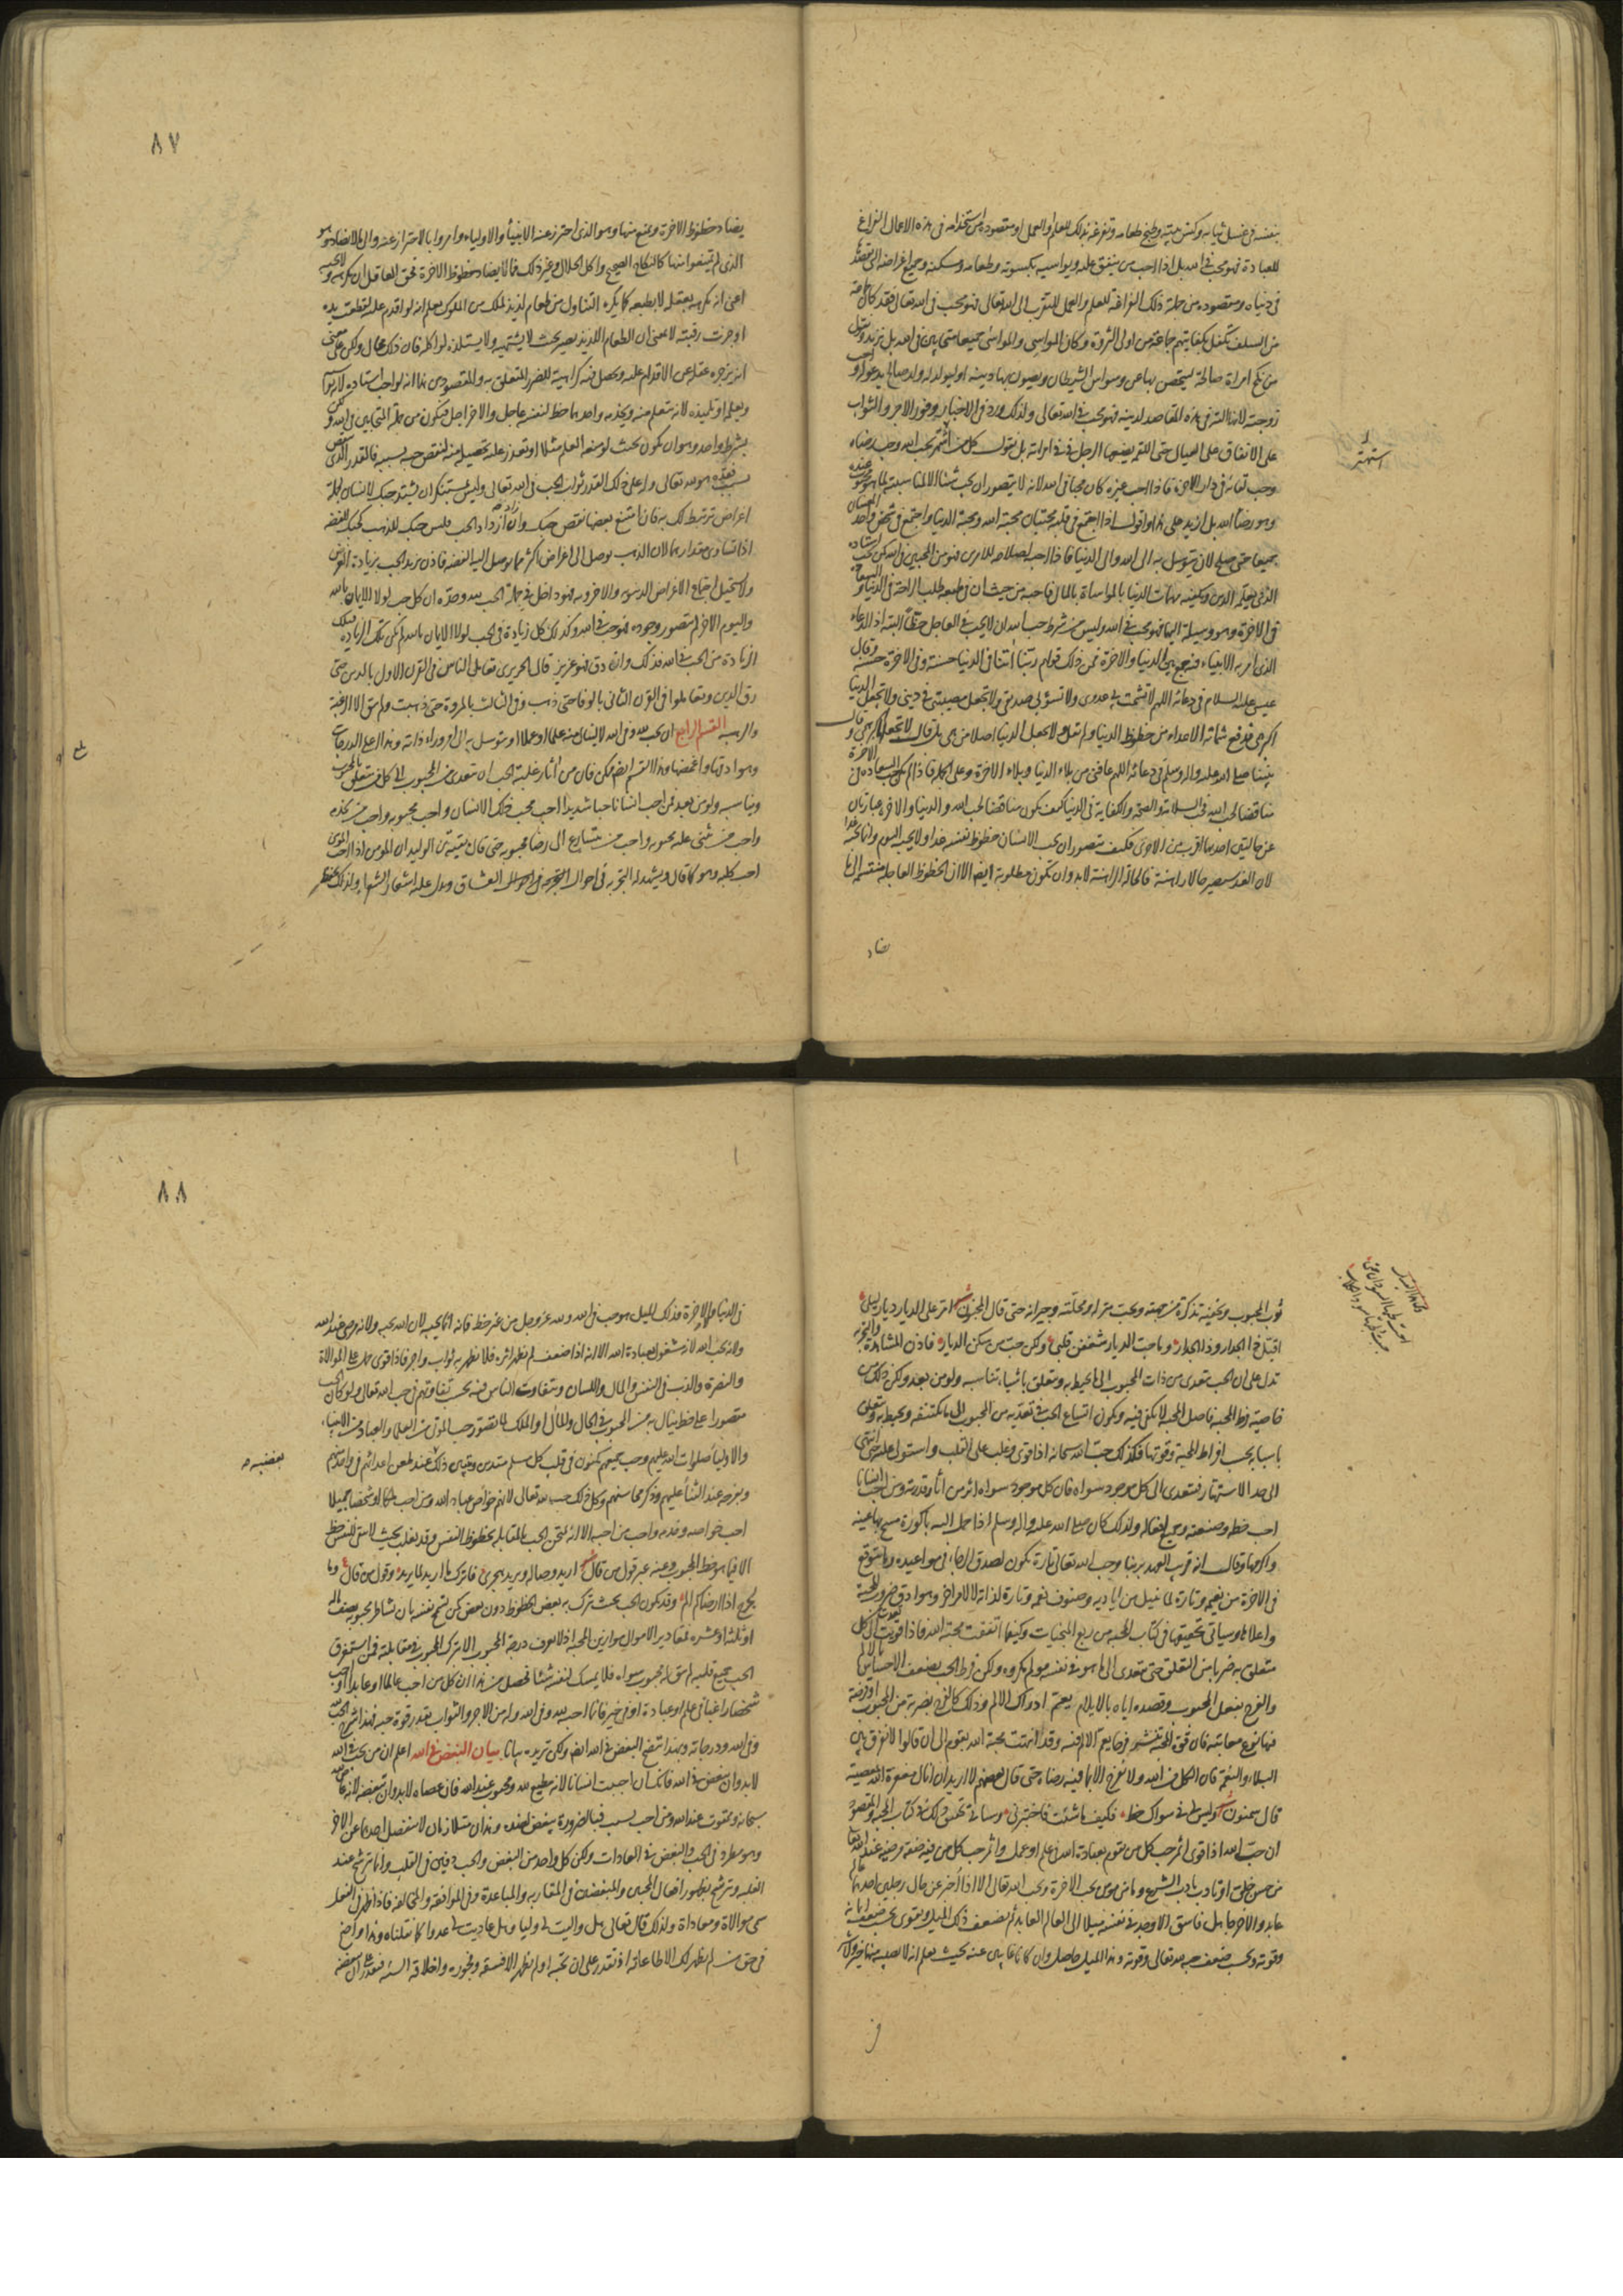 بنفسه في غسل ثيابه وكنس بيته وطبخ طعامه وتفرغه بذلك للعلم او العمل ومقصوده من استخدامه في هذه الاعمال الفراغ
للعبادة فهو محب في الله بل اذا احب من ينفق عليه ويواسيه بكسوته وطعامه ومسكنه وجميع اغراضه التي يقصدها
في دنياه ومقصوده من جملة ذلك الفراغة للعلم والعمل المقرب الى الله تعالى فهو محب في الله تعالى فقد كان جماعة
من السلف تكفل بكفايتهم جماعة من اولي الثروة وكان المواسي والمواسى جميعا متحابين في الله بل نزيد ونقول
من نكح امراة صالحة ليتحصن بها عن وسواس الشيطان ويصون بها دينه او ليولد له ولد صالح يدعو له واحب
زوجته لانها الة في هذه المقاصد الدينية فهو محب في الله تعالى ولذلك ورد في الاخبار وفور الاجر والثواب
على الانفاق على العيال حتى اللقمة يضعها الرجل في في امراته بل نقول كل من اشتهر بحب الله وحب رضاه
وحب لقائه في دار الاخرة فاذا احب غيره كان محبا في الله لانه لا يتصور ان يحب شيئا الا لمناسبته لما هو محبوب عنده
وهو رضا الله بل ازيد على هذا واقول اذا اجتمع في قلبه محبتان محبة الله ومحبة الدنيا واجتمع في شخص واحد المعنيان
جميعا حتى صلح لان يتوسل به الى الله والى الدنيا فاذا احبه لصلاحه للامرين فهو من المحبين في الله كمن يحب استاده
الذي يعلمه الدين ويكفيه مهمات الدنيا بالمواساة بالمال فاحبه من حيث ان في طبعه طلب الراحة في الدنيا والسعادة
في الاخرة وهو وسيلة اليهما فهو محب في الله وليس من شرط حب الله ان لا يحب في العاجل حظا البتة اذ الدعاء
الذي امر به الانبياء فيه جمع بين الدنيا والاخرة فمن ذلك قولهم ربنا آتنا في الدنيا حسنة وفي الاخرة حسنة وقال
عيسى عليه السلام في دعائه اللهم لا تشمت بي عدوي ولا تسؤ بي صديقي ولا تجعل مصيبتي في ديني ولا تجعل الدنيا
اكبر همي فدفع شماتة الاعداء من حظوظ الدنيا ولم يقل ولا تجعل الدنيا اصلا من همي بل قال لا تجعلها اكبر همي وقال
نبينا صلى الله عليه واله وسلم في دعائه اللهم عافني من بلاء الدنيا وبلاء الاخرة وعلى الجملة فاذا لم يكن حب السعادة في الاخرة
مناقضا لحب الله فحب السلامة والصحة والكفاية في الدنيا كيف يكون مناقضا لحب الله والدنيا والاخرة عبارتان
عن حالتين احدهما اقرب من الاخرى فكيف يتصور ان يحب الانسان حظوظ نفسه غدا ولا يحبها اليوم وانما يحبها غدا
لان الغد سيصير حالا راهنة فالحالة الراهنة لابد وان تكون مطلوبة ايضا الا ان الحظوظ العاجلة منقسمة الى ما
يضاد
استهتر
٨٧
يضاد حظوظ الاخرة ويمنع منها وهو الذي احترز عنه الانبياء والاولياء وامروا بالاحتراز عنه والى ما لا يضاد وهو
الذي لم يمتنعوا منها كالنكاح الصحيح واكل الحلال وغير ذلك فما لا يضاد حظوظ الاخرة فحق العاقل ان يكرهه ولا يحبه
اعني ان يكرهه بعقله لا بطبعه كما يكره التناول من طعام لذيذ لملك من الملوك يعلم انه لو اقدم عليه لقطعت يده
او حزت رقبته لا بمعنى ان الطعام اللذيذ يصير بحيث لا يشتهيه ولا يستلذه لو اكله فان ذلك محال ولكن على معنى
انه يزجره عقله عن الاقدام عليه ويحصل فيه كراهية للضرر المتعلق به والمقصود من هذا انه لو احب استاده لانه يواسيه
ويعلمه او تلميذه لانه يتعلم منه ويخدمه واحدهما حظ لنفسه عاجل والاخر اجل فيكون من جملة المتحابين في الله ولكن
بشرط واحد وهو ان يكون بحيث لو منعه العلم مثلا او تعذر عليه تحصيله منه لنقص حبه بسببه فالقدر الذي ينقص
بسبب فقده هو لله تعالى وله على ذلك القدر ثواب الحب في الله تعالى وليس بمستنكر ان يشتد حبك لانسان لجملة
اغراض ترتبط لك به فان امتنع بعضها نقص حبك وان زاد ازداد الحب فليس حبك للذهب كحبك للفضة
اذا تساوى مقدارهما لان الذهب يوصل الى اغراض اكثر مما يوصل اليه الفضة فاذن يزيد الحب بزيادة الغرض
ولا يستحيل اجتماع الاغراض الدنيوية والاخروية فهو داخل في جملة الحب لله وحده ان كل حب لولا الايمان بالله
واليوم الاخر لم يتصور وجوده فهو حب في الله وكذلك كل زيادة في الحب لولا الايمان بالله لم تكن تلك الزيادة فتلك
الزيادة من الحب في الله فذلك وان دق فهو عزيز قال الحريري تعامل الناس في القرن الاول بالدين حتى
رق الدين وتعاملوا في القرن الثاني بالوفا حتى ذهب وفي الثالث بالمروة حتى ذهبت ولم يبق الا الرغبة
والرهبة القسم الرابع ان يحب لله وفي الله لا لينال منه علما او عملا او يتوسل به الى امر وراء ذاته وهذا اعلى الدرجات
وهو ادقها واغمضها وهذا القسم ايضا ممكن فان من اثار غلبة الحب ان يتعدى من المحبوب الى كل من يتعلق بالمحبوب
ويناسبه ولو من بعد فمن احب انسانا حبا شديدا احب محب ذلك الانسان واحب محبوبه واحب من يخدمه
واحب من يثني عليه محبوبه واحب من يتسارع الى رضا محبوبه حتى قال بقية بن الوليد ان المؤمن اذا احب المؤمن
احب كلبه وهو كما قال ويشهد له التجربة في احوال العشاق ويدل عليه اشعار الشعراء ولذلك يحفظ
٨٨
ثوب المحبوب ويخفيه تذكرة من جهته ويحب منزله ومحلته وجيرانه حتى قال المجنون شعر امر على الديار ديار ليلى
اقبل ذا الجدار وذا الجدارا وما حب الديار شغفن قلبي ولكن حب من سكن الديارا فاذن المشاهدة والتجربة
تدل على ان الحب يتعدى من ذات المحبوب الى ما يحيط به ويتعلق باشياء تناسبه ولو من بعد ولكن ذلك من
خاصية فرط المحبة فاصل المحبة لا يكفي فيه ويكون اتساع الحب في تعديه من المحبوب الى ما يكتنفه ويحيط به ويتعلق
باسبابه بحسب افراط المحبة وقوتها فكذلك حب الله سبحانه اذا قوي وغلب على القلب واستولى عليه حتى انتهى
الى حد الاستهتار فيتعدى الى كل موجود سواه فان كل موجود سواه اثر من آثار قدرته ومن احب انسانا
احب خطه وصنعته وجميع افعاله ولذلك كان صلى الله عليه واله وسلم اذا حمل اليه باكورة مسح بها عينيه
واكرمها وقال انه قريب العهد بربنا وحب الله تعالى تارة يكون لصدق الرجاء في مواعيده وما يتوقع
في الاخرة من نعيمه وتارة لما نيل من اياديه وصنوف نعمه وتارة لذاته لا لامر اخر وهو ادق ضروب المحبة
واعلاها وسياتي تحقيقها في كتاب المحبة من ربع المنجيات وكيفما اتفقت محبة الله فاذا قويت تعدت الى كل
متعلق به ضربا من التعلق حتى يتعدى الى ما هو في نفسه مولم مكروه ولكن فرط الحب يضعف الاحساس بالالم
والفرح بفعل المحبوب وقصده اياه بالايلام يعم ادراك الالم وذلك كالفرح بضربة من المحبوب او قرصة
فيها نوع معاتبة فان قوة المحبة تثير فرحا يعم الالم فيه وقد انتهت محبة الله بقوم الى ان قالوا لا نفرق بين
البلاء والنعمة فان الكل من الله ولا نفرح الا بما فيه رضاه حتى قال بعضهم لا اريد ان انال مغفرة الله بمعصية
قال سمنون شعر وليس لي في سواك حظ فكيف ما شئت فاختبرني وسياتي تحقيق ذلك في كتاب المحبة والمقصود
ان حب الله اذا قوي اثمر حب كل من يقوم بعبادة الله في علم او عمل واثمر حب كل من فيه صفة مرضية عند الله تعالى
من حسن خلق او تادب باداب الشرع وما من مومن محب الاخرة ومحب الله تعالى الا اذا اخبر عن حال رجلين احدهما عالم
عابد والاخر جاهل فاسق الا وجد في نفسه ميلا الى العالم العابد ثم يضعف ذلك الميل ويقوى بحسب ضعف ايمانه
وقوته وبحسب ضعف حبه لله تعالى وقوته وهذا الميل حاصل وان كانا غايبين عنه بحيث يعلم انه لا يصيبه منهما خير ولا شر
في
في الدنيا والاخرة فذلك الميل هو حب في الله ولله عز وجل من غير حظ فانه انما يحبه لان الله يحبه ولانه مرضي عند الله
ولانه يحب الله ولانه مشغول بعبادة الله الا انه اذا ضعف لم يظهر اثره فلا يظهر به ثواب واجر فاذا قوي حمل على الموالاة
والنصرة والذب في النفس والمال واللسان ويتفاوت الناس فيه بحسب تفاوتهم في حب الله تعالى ولو كان الحب
مقصورا على حظ ينال به من المحبوب في الحال والمآل او الملك لما تصور حب الموتى من العلماء والعباد من الانبياء
والاولياء صلوات الله عليهم وحب جميعهم مكنون في قلب كل مسلم متدين ويتبين ذلك عند طعن اعدائهم في واحد منهم
وبفرحه عند الثناء عليهم وذكر محاسنهم وكل ذلك حب لله تعالى لانهم خواص عباد الله ومن احب ملكا او شخصا جميلا
احب خواصه وخدمه واحب من احبه الا انه يمتحن الحب بالمقابلة بحظوظ النفس وقد يغلب بحيث لا يبقى للنفس حظ
الا فيما هو حظ المحبوب وعنه عبر قول من قال شعر اريد وصاله ويريد هجري فاترك ما اريد لما يريد وقول من قال وما
لجرح اذا ارضاكم الم وقد يكون الحب بحيث يترك به بعض الحظوظ دون بعض كمن تسمح نفسه بان يشاطر محبوبه نصف ماله
او ثلثه او عشره فمقادير الاموال موازين المحبة اذ لا يعرف درجة المحبوب الا بترك المحبوب في مقابلته فمن استغرق
الحب جميع قلبه لم يبق له محبوب سواه فلا يمسك لنفسه شيئا فحصل من هذا ان كل من احب عالما او عابدا او احب
شخصا راغبا في علم او عبادة او في خير فانما احبه لله وفي الله وله من الاجر والثواب بقدر قوة حبه فهذا شرح الحب
في الله ودرجاته وبهذا يتضح البغض في الله ايضا ولكن نزيده بيانا بيان البغض في الله اعلم ان من يحب في الله
لابد وان يبغض في الله فانك ان احببت انسانا لانه مطيع لله ومحبوب عند الله فان عصاه لابد وان تبغضه لانه عاص لله
سبحانه وممقوت عند الله ومن احب بسبب فبالضرورة يبغض لضده وهذان متلازمان لا ينفصل احدهما عن الاخر
وهو مطرد في الحب والبغض في العادات ولكن كل واحد من البغض والحب دفين في القلب وانما يترشح عند
الغلبة ويترشح بظهور افعال المحبين والمبغضين في المقاربة والمباعدة وفي الموافقة والمخالفة فاذا ظهر في الفعل
سمي موالاة ومعاداة ولذلك قال تعالى هل واليت لي وليا وهل عاديت لي عدوا كما نقلناه وهذا واضح
في حق من لم يظهر لك الا طاعاته اذ تقدر على ان تحبه او لم يظهر الا فسقه وفجوره واخلاقه السيئة فتقدر على ان تبغضه